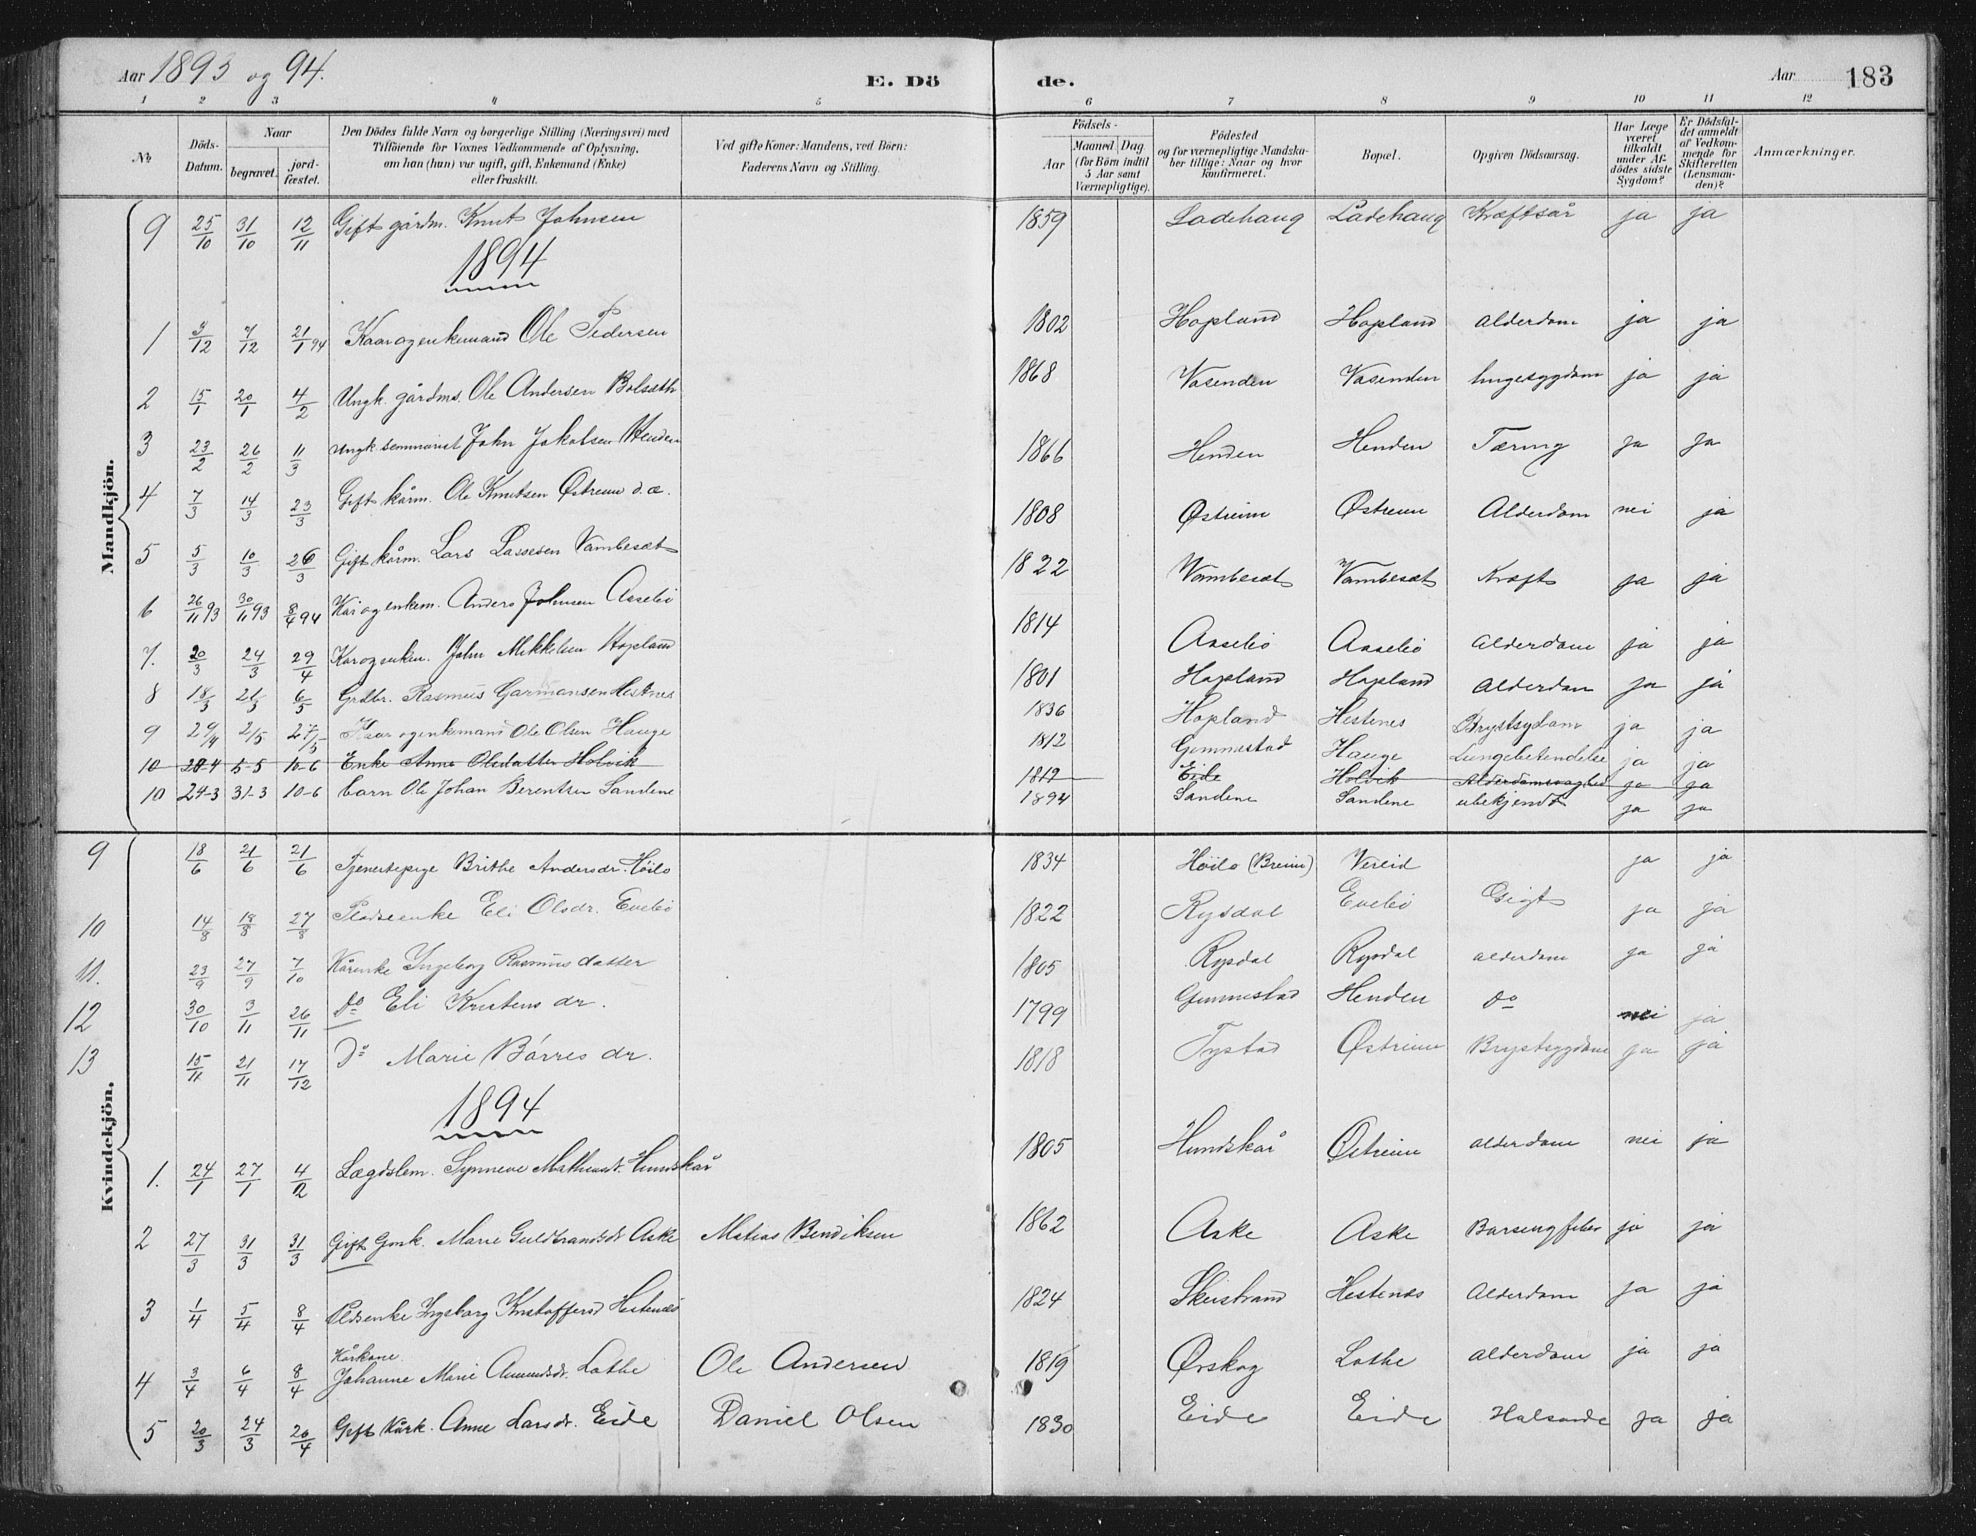 Aar 1893 og 94. E. Dö de. Aar 183
1 2 3 4 5 6 7 8 9 10 11 12
No Döds-Datum. Naar begravet. jordfæstet. Den Dödes fulde Navn og borgerlige Stilling (Næringsvei) med Tilföiende for Voxnes Vedkommende af Oplysning, om han (hun) var ugift, gift, Enkemand (Enke) eller fraskilt. Ved gifte Koner: Mandens, ved Börn: Faderens Navn og Stilling. Födsels- Aar Maaned Dag (for Börn indtil 5 Aar samt Værnepligtige). Födested og for værnepligtige Mandskaber tillige: Naar og hvor konfirmeret. Bopæl. Opgiven Dödsaarsag. Har Læge været tilkaldt under Afdödes sidste Sygdom? Er Dödsfaldet anmeldt af Vedkommende for Skifteretten (Lensmanden)? Anmærkninger.
Mandkjön.
9 25/10 31/10 12/11 Gift gårdm. Knut Johnsen 1859 Ladehaug Ladehaug Kræftsår ja ja
1894
1 3/12 7/12 21/1 94 Kaarogenkemand Ole Pedersen 1802 Hopland Hopland Alderdom ja ja
2 15/1 20/1 4/2 Ungk. gårdms. Ole Andersen Bolsæth 1868 Vasenden Vasenden lungesygdom ja ja
3 23/2 26/2 11/3 Ungk. seminarist John Jakobsen Henden 1866 Henden Henden Tæring ja ja
4 7/3 14/3 23/3 Gift kårm. Ole Knutsen Østreim d.æ. 1808 Østreim Østreim Alderdom nei ja
5 5/3 10/3 26/3 Gift kårm. Lars Lassesen Vambesæt 1822 Vambesæt Vambesæt Kræft ja ja
6 26/11 93 30/11 93 8/4 94 Karogenkem. Anders Johnsen Aasebø 1814 Aasebø Aasebø Alderdom ja ja
7. 20/3 24/3 29/4 Karogenkem. John Mikkelsen Hopland 1801 Hopland Hopland Alderdom ja ja
8 18/3 21/3 6/5 Grdbr. Rasmus Garmansen Hestnes 1836 Hopland Hestenes Brystsygdom ja ja
9 29/4 2/5 27/5 Kaarogenkemand Ole Olsen Hauge 1812 Gemmestad Hauge Lungebetendelse ja ja
10 28-4 5-5 10-6 Enke Anne Olesdatter Holvik 1819 Eide Holvik Alderdomssvaghed ja ja
10 24-3 31-3 10-6 barn Ole Johan Berentsen Sandene 1894 Sandene Sandene ubekjendt ja ja
Kvindekjön.
9 18/6 21/6 21/6 Tjenestepige Brithe Andersdr. Höilo 1834 Höilo (Breim) Vereid ja ja
10 14/8 18/8 27/8 Pladsenke Eli Olsdr. Evebø 1822 Rygdal Evebø Gigt ja ja
11. 23/9 27/9 7/10 Kårenke Ingeborg Rasmusdatter 1805 Rygdal Rygdal alderdom ja ja
12 30/10 3/11 26/11 do Eli Kristensdr. 1799 Gemmestad Henden do nei ja
13 15/11 21/11 17/12 Do Marie Börresdr. 1818 Tystad Østreim Brystsygdom ja ja
1894
1. 24/1 27/1 4/2 Lægdslem. Synneve Mathiasdr. Hundskår 1805 Hundskår Østreim alderdom nei ja
2 27/3 31/3 31/3 Gift Gmk. Marie Guldbrandsdr Aske Matias Bendiksen 1862 Aske Aske Barselfeber ja ja
3 1/4 5/4 8/4 Pldsenke Ingeborg Kristoffersd Hestenæs 1824 Skeistrand Hestenæs Alderdom ja ja
4 3/4 6/4 8/4 Kårkone Johanne Marie Amundsdr. Lothe Ole Andersen 1819 Ørskog Lothe Alderdom ja ja
5 20/3 24/3 20/4 Gift Kårk. Anne Larsdr. Eide Daniel Olsen 1830 Eide Eide Halsonde ja ja